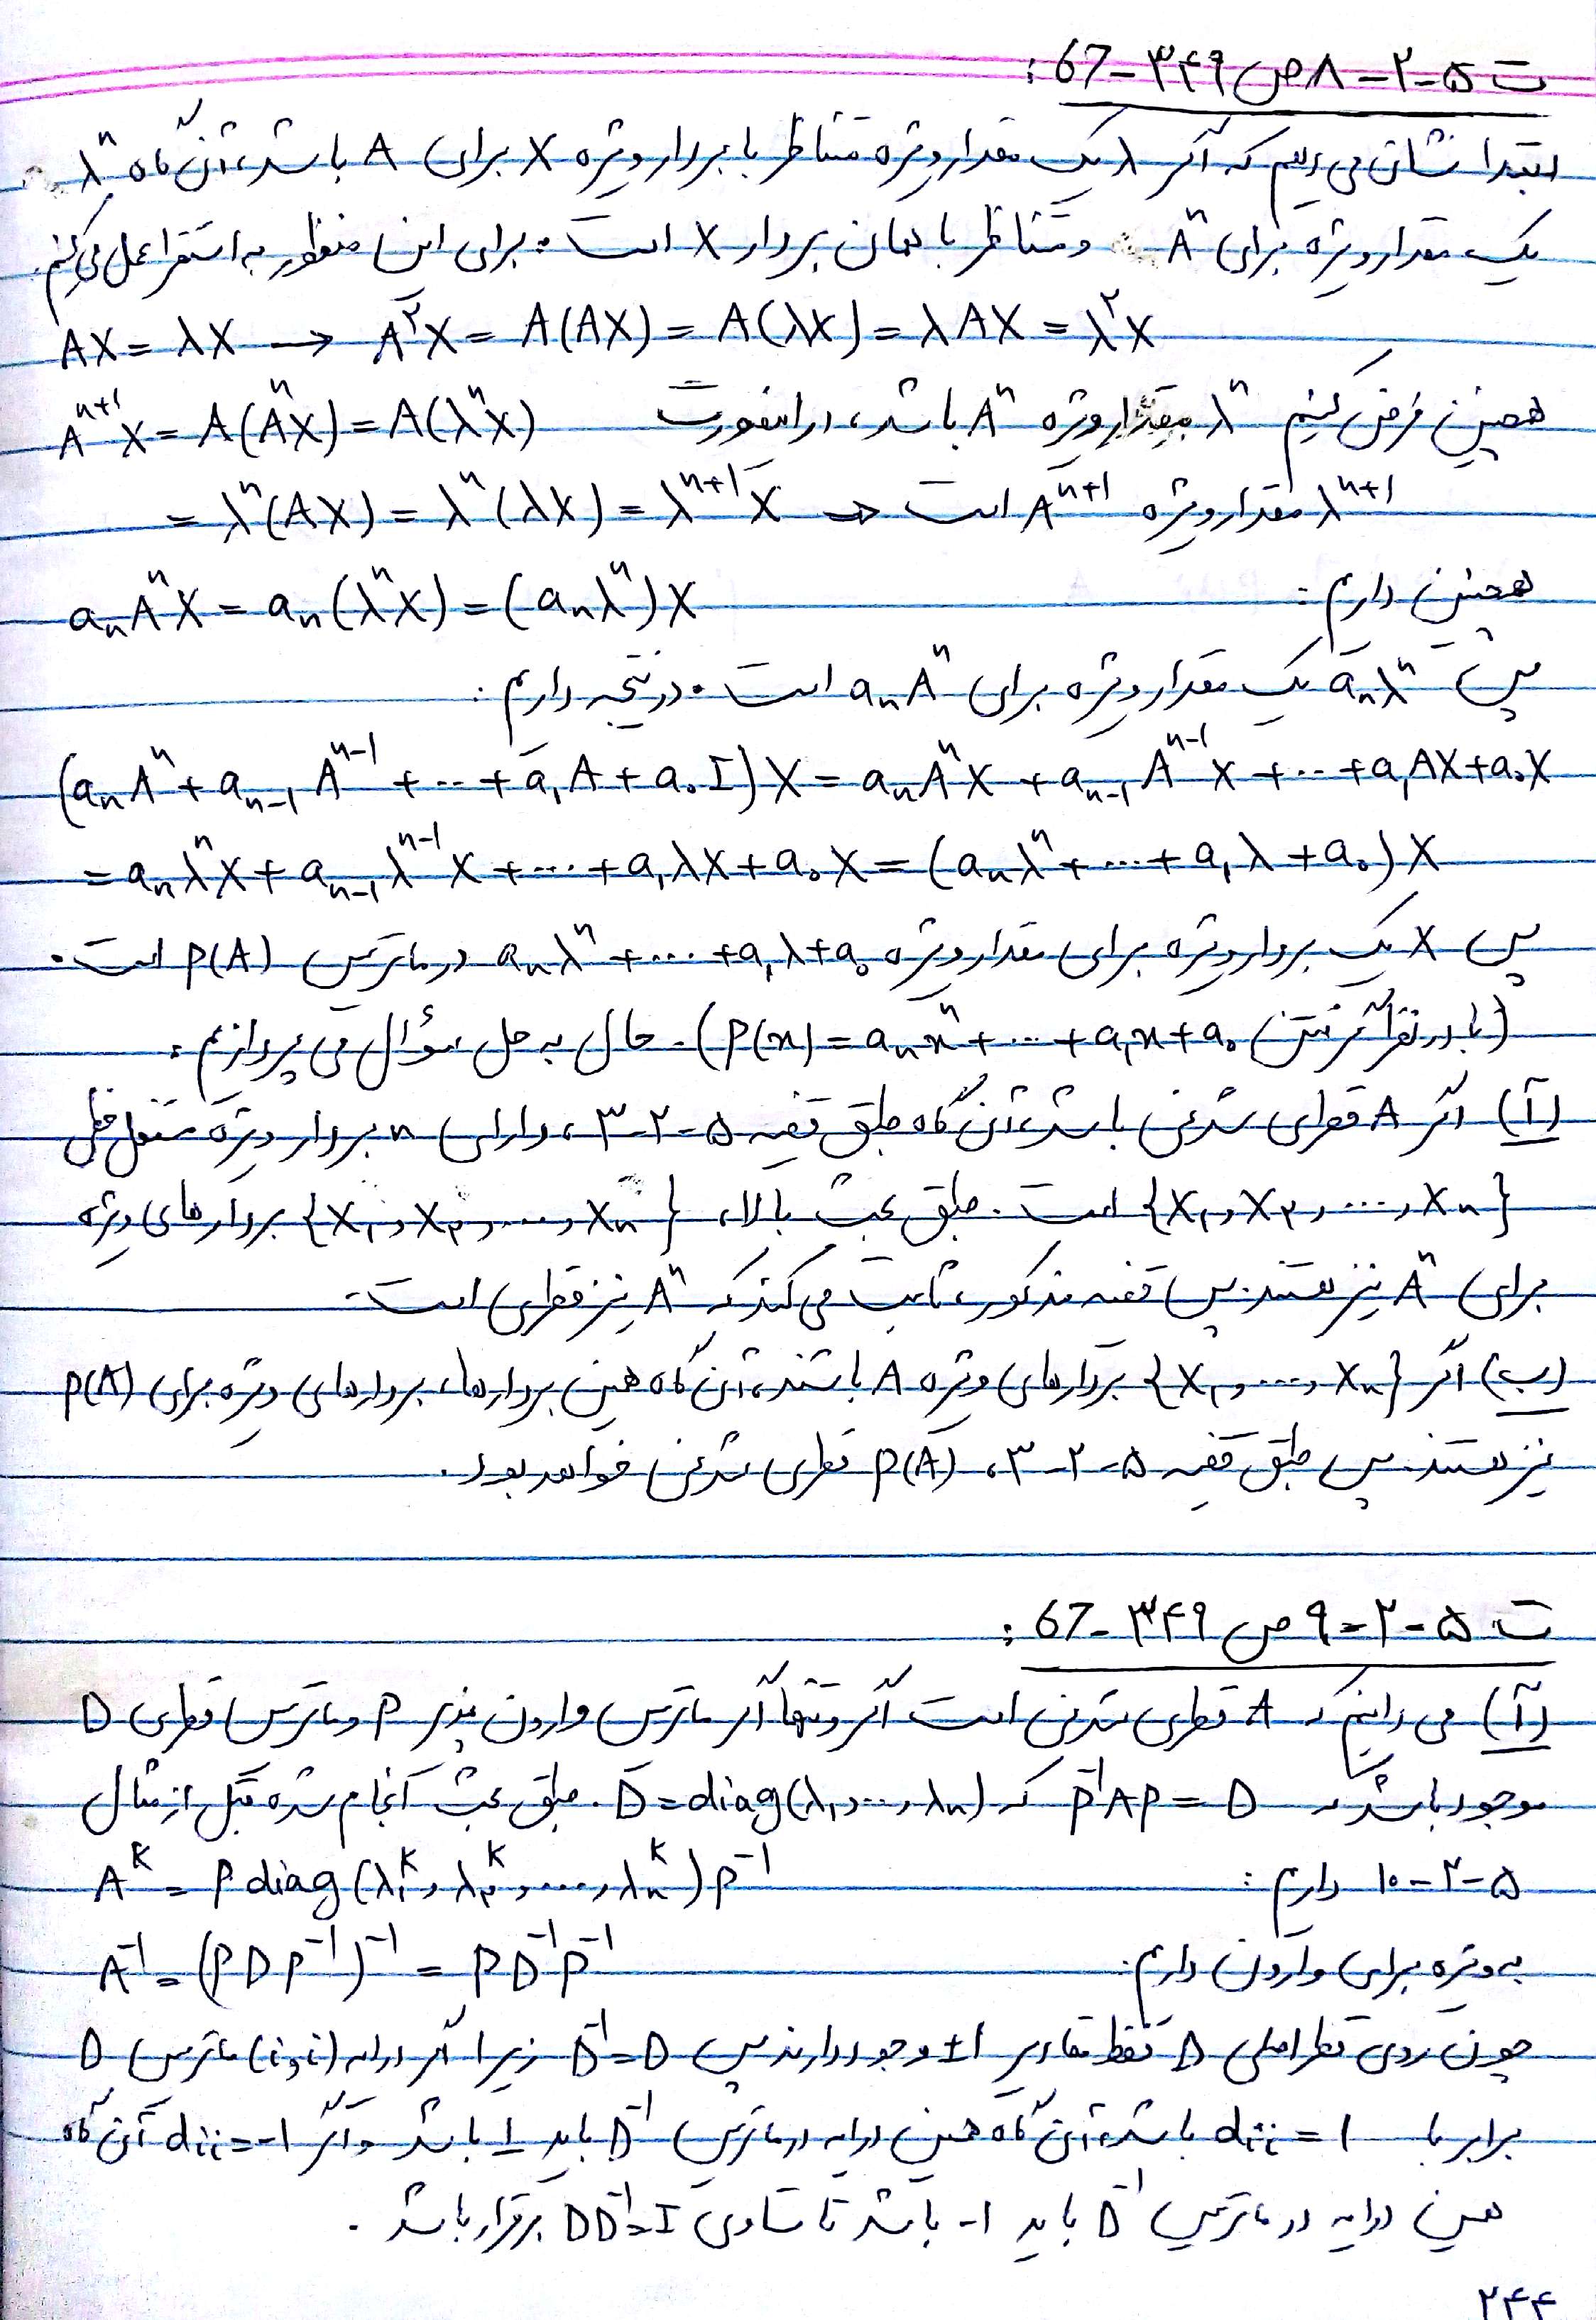 ت ۵-۲-۸ ص ۳۴۹-67:
ابتدا نشان می دهیم که اگر λ یک مقدار ویژه متناظر با بردار ویژه X برای A باشد، آن گاه λⁿ
یک مقدار ویژه برای Aⁿ و متناظر با همان بردار X است. برای این منظور به استقرا عمل می کنیم.
AX = λX → A²X = A(AX) = A(λX) = λAX = λ²X
همچنین فرض کنیم λⁿ مقدار ویژه Aⁿ باشد، در اینصورت Aⁿ⁺¹X = A(AⁿX) = A(λⁿX)
= λⁿ(AX) = λⁿ(λX) = λⁿ⁺¹X ⇒ λⁿ⁺¹ مقدار ویژه Aⁿ⁺¹ است
همچنین داریم: aₙAⁿX = aₙ(λⁿX) = (aₙλⁿ)X
پس aₙλⁿ یک مقدار ویژه برای aₙAⁿ است. در نتیجه داریم:
(aₙAⁿ + aₙ₋₁Aⁿ⁻¹ + ... + a₁A + a₀I)X = aₙAⁿX + aₙ₋₁Aⁿ⁻¹X + ... + a₁AX + a₀X
= aₙλⁿX + aₙ₋₁λⁿ⁻¹X + ... + a₁λX + a₀X = (aₙλⁿ + ... + a₁λ + a₀)X
پس X یک بردار ویژه برای مقدار ویژه aₙλⁿ + ... + a₁λ + a₀ در ماتریس P(A) است.
(با در نظر گرفتن P(x) = aₙxⁿ + ... + a₁x + a₀). حال به حل سؤال می پردازیم:
(آ) اگر A قطری شدنی باشد، آن گاه طبق قضیه ۵-۲-۳، دارای n بردار ویژه مستقل خطی
{X₁, X₂, ..., Xₙ} است. طبق بحث بالا، {X₁, X₂, ..., Xₙ} بردارهای ویژه
برای Aⁿ نیز هستند. پس قضیه مذکور، ثابت می کند که Aⁿ نیز قطری است.
(ب) اگر {X₁, ..., Xₙ} بردارهای ویژه A باشند، آن گاه همین بردارها، بردارهای ویژه برای P(A)
نیز هستند. پس طبق قضیه ۵-۲-۳، P(A) قطری شدنی خواهد بود.
ت ۵-۲-۹ ص ۳۴۹-67:
(آ) می دانیم که A قطری شدنی است اگر و تنها اگر ماتریس وارون پذیر P و ماتریس قطری D
موجود باشد که P⁻¹AP = D که D = diag(λ₁, ..., λₙ). طبق بحث انجام شده قبل از مثال
۵-۲-۱۰ داریم: Aᵏ = P diag(λ₁ᵏ, λ₂ᵏ, ..., λₙᵏ)P⁻¹
به ویژه برای وارون داریم: A⁻¹ = (PDP⁻¹)⁻¹ = PD⁻¹P⁻¹
چون روی قطر اصلی D فقط مقادیر ±۱ وجود دارند پس D⁻¹ = D زیرا اگر درایه (i,i) ماتریس D
برابر با dᵢᵢ = ۱ باشد، آن گاه همین درایه در ماتریس D⁻¹ باید ۱ باشد و اگر dᵢᵢ = -۱ آن گاه
همین درایه در ماتریس D⁻¹ باید -۱ باشد تا تساوی DD⁻¹ = I برقرار باشد.
۲۴۴